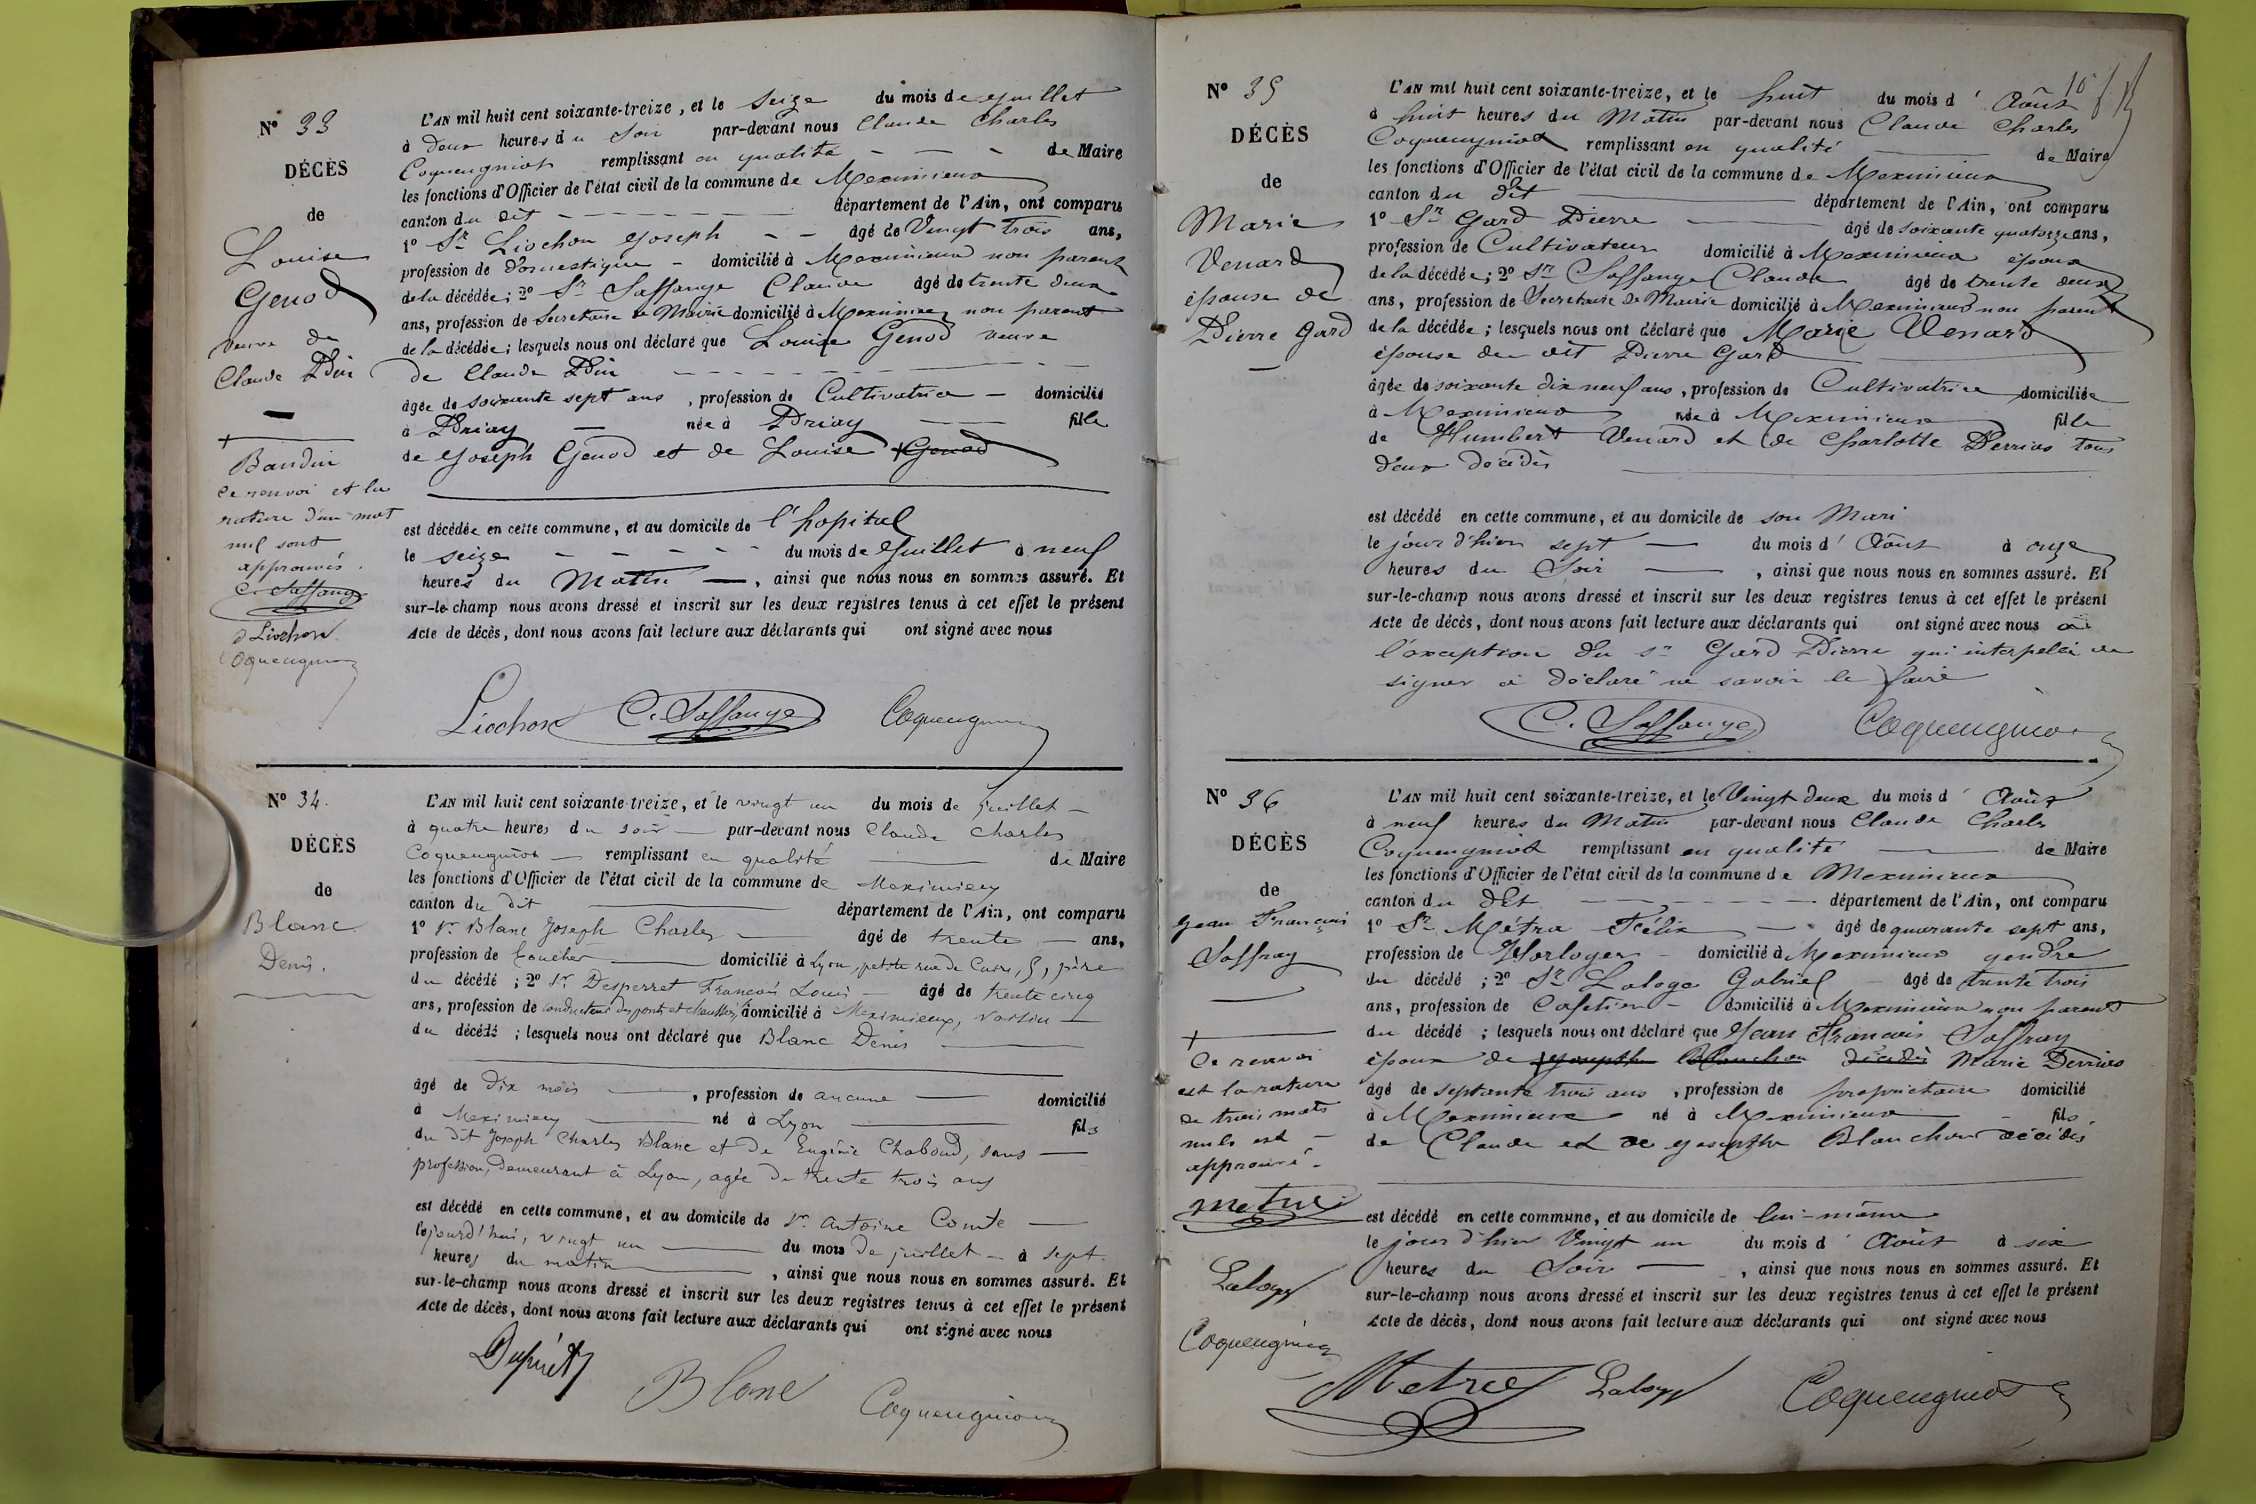 N° 33
DÉCÈS
de
Louise
Genod
veuve de
Claude
Baudin
ce renvoi et la
rature d'un mot
nul sont
approuvés.
C. Saffange
Liochon
Coquengniot
L'AN mil huit cent soixante-treize, et le seize du mois de Juillet
à deux heures du Soir par-devant nous Claude Charles
Coquengniot remplissant en qualité de Maire
les fonctions d'Officier de l'état civil de la commune de Meximieux
canton du dit département de l'Ain, ont comparu
1° Sr Liochon Joseph âgé de Vingt trois ans,
profession de Domestique domicilié à Meximieux non parent
de la décédée ; 2° Sr Saffange Claude âgé de trente deux
ans, profession de Secretaire de Mairie domicilié à Meximieux non parent
de la décédée ; lesquels nous ont déclaré que Louise Genod veuve
de Claude
âgée de soixante sept ans, profession de Cultivatrice domicilié
à Priay née à Priay fille
de Joseph Genod et de Louise Genod
est décédée en cette commune, et au domicile de l'hopital
le seize du mois de Juillet à neuf
heures du Matin, ainsi que nous nous en sommes assuré. Et
sur-le-champ nous avons dressé et inscrit sur les deux registres tenus à cet effet le présent
Acte de décès, dont nous avons fait lecture aux déclarants qui ont signé avec nous
Liochon C. Saffange Coquengniot
N° 34.
DÉCÈS
de
Blanc
Denis.
L'AN mil huit cent soixante-treize, et le vingt un du mois de juillet
à quatre heures du soir par-devant nous Claude Charles
Coquengniot remplissant en qualité de Maire
les fonctions d'Officier de l'état civil de la commune de Meximieux
canton du dit département de l'Ain, ont comparu
1° Sr Blanc Joseph Charles âgé de trente ans,
profession de boucher domicilié à Lyon, petite rue de Cuire, 5, père
du décédé ; 2° Sr Desperret François Louis âgé de trente cinq
ans, profession de conducteur des ponts et chaussées, domicilié à Meximieux, voisin
du décédé ; lesquels nous ont déclaré que Blanc Denis
âgé de dix mois, profession de aucune domicilié
à Meximieux né à Lyon fils
du dit Joseph Charles Blanc et de Eugénie Chaboud, sans
profession, demeurant à Lyon, agée de trente trois ans
est décédé en cette commune, et au domicile de Sr Antoine Comte
lejourd'hui, vingt un du mois de juillet à sept
heures du matin, ainsi que nous nous en sommes assuré. Et
sur-le-champ nous avons dressé et inscrit sur les deux registres tenus à cet effet le présent
Acte de décès, dont nous avons fait lecture aux déclarants qui ont signé avec nous
Blanc Coquengniot
N° 35
DÉCÈS
de
Marie
Venard
épouse de
Pierre Gard
L'AN mil huit cent soixante-treize, et le huit du mois d'Août
à huit heures du Matin par-devant nous Claude Charles
Coquengniot remplissant en qualité de Maire
les fonctions d'Officier de l'état civil de la commune de Meximieux
canton du dit département de l'Ain, ont comparu
1° Sr Gard Pierre âgé de soixante quatorze ans,
profession de Cultivateur domicilié à Meximieux époux
de la décédée ; 2° Sr Saffange Claude âgé de trente deux
ans, profession de Secretaire de Mairie domicilié à Meximieux non parent
de la décédée ; lesquels nous ont déclaré que Marie Venard
épouse du dit Pierre Gard
âgée de soixante dix neuf ans, profession de Cultivatrice domiciliée
à Meximieux née à Meximieux fille
de Humbert Venard et de Charlotte Derrias tous
deux décédés
est décédé en cette commune, et au domicile de son Mari
le jour d'hier sept du mois d'Août à onze
heures du Soir, ainsi que nous nous en sommes assuré. Et
sur-le-champ nous avons dressé et inscrit sur les deux registres tenus à cet effet le présent
Acte de décès, dont nous avons fait lecture aux déclarants qui ont signé avec nous à
l'exception du sr Gard Pierre qui interpellé de
signer a déclaré ne savoir le faire
C. Saffange Coquengniot
N° 36
DÉCÈS
de
Jean François
Saffray
Ce renvoi
est la rature
de trois mots
nuls est
approuvé.
Metra
Laloge
Coquengniot
L'AN mil huit cent soixante-treize, et le Vingt deux du mois d'Août
à neuf heures du Matin par-devant nous Claude Charles
Coquengniot remplissant en qualité de Maire
les fonctions d'Officier de l'état civil de la commune de Meximieux
canton du dit département de l'Ain, ont comparu
1° Sr Métra Félix âgé de quarante sept ans,
profession de Horloger domicilié à Meximieux gendre
du décédé ; 2° Sr Laloge Gabriel âgé de trente trois
ans, profession de Cafetier domicilié à Meximieux non parent
du décédé ; lesquels nous ont déclaré que Jean François Saffray
époux de Josephte Blanchon décédés Marie Derrias
âgé de septante trois ans, profession de propriétaire domicilié
à Meximieux né à Meximieux fils
de Claude et de Josephte Blanchon décédés
est décédé en cette commune, et au domicile de lui-même
le jour d'hier Vingt un du mois d'Août à six
heures du Soir, ainsi que nous nous en sommes assuré. Et
sur-le-champ nous avons dressé et inscrit sur les deux registres tenus à cet effet le présent
Acte de décès, dont nous avons fait lecture aux déclarants qui ont signé avec nous
Metra Laloge Coquengniot